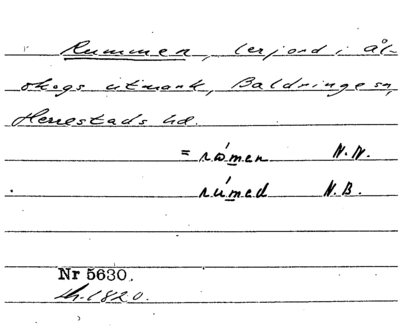 Rummen, lerjord i ål-
skogs utmark, Baldringe sn,
Herrestads hd.
= rómen N.N.
rúmed N.B.
Nr 5630.
1820.